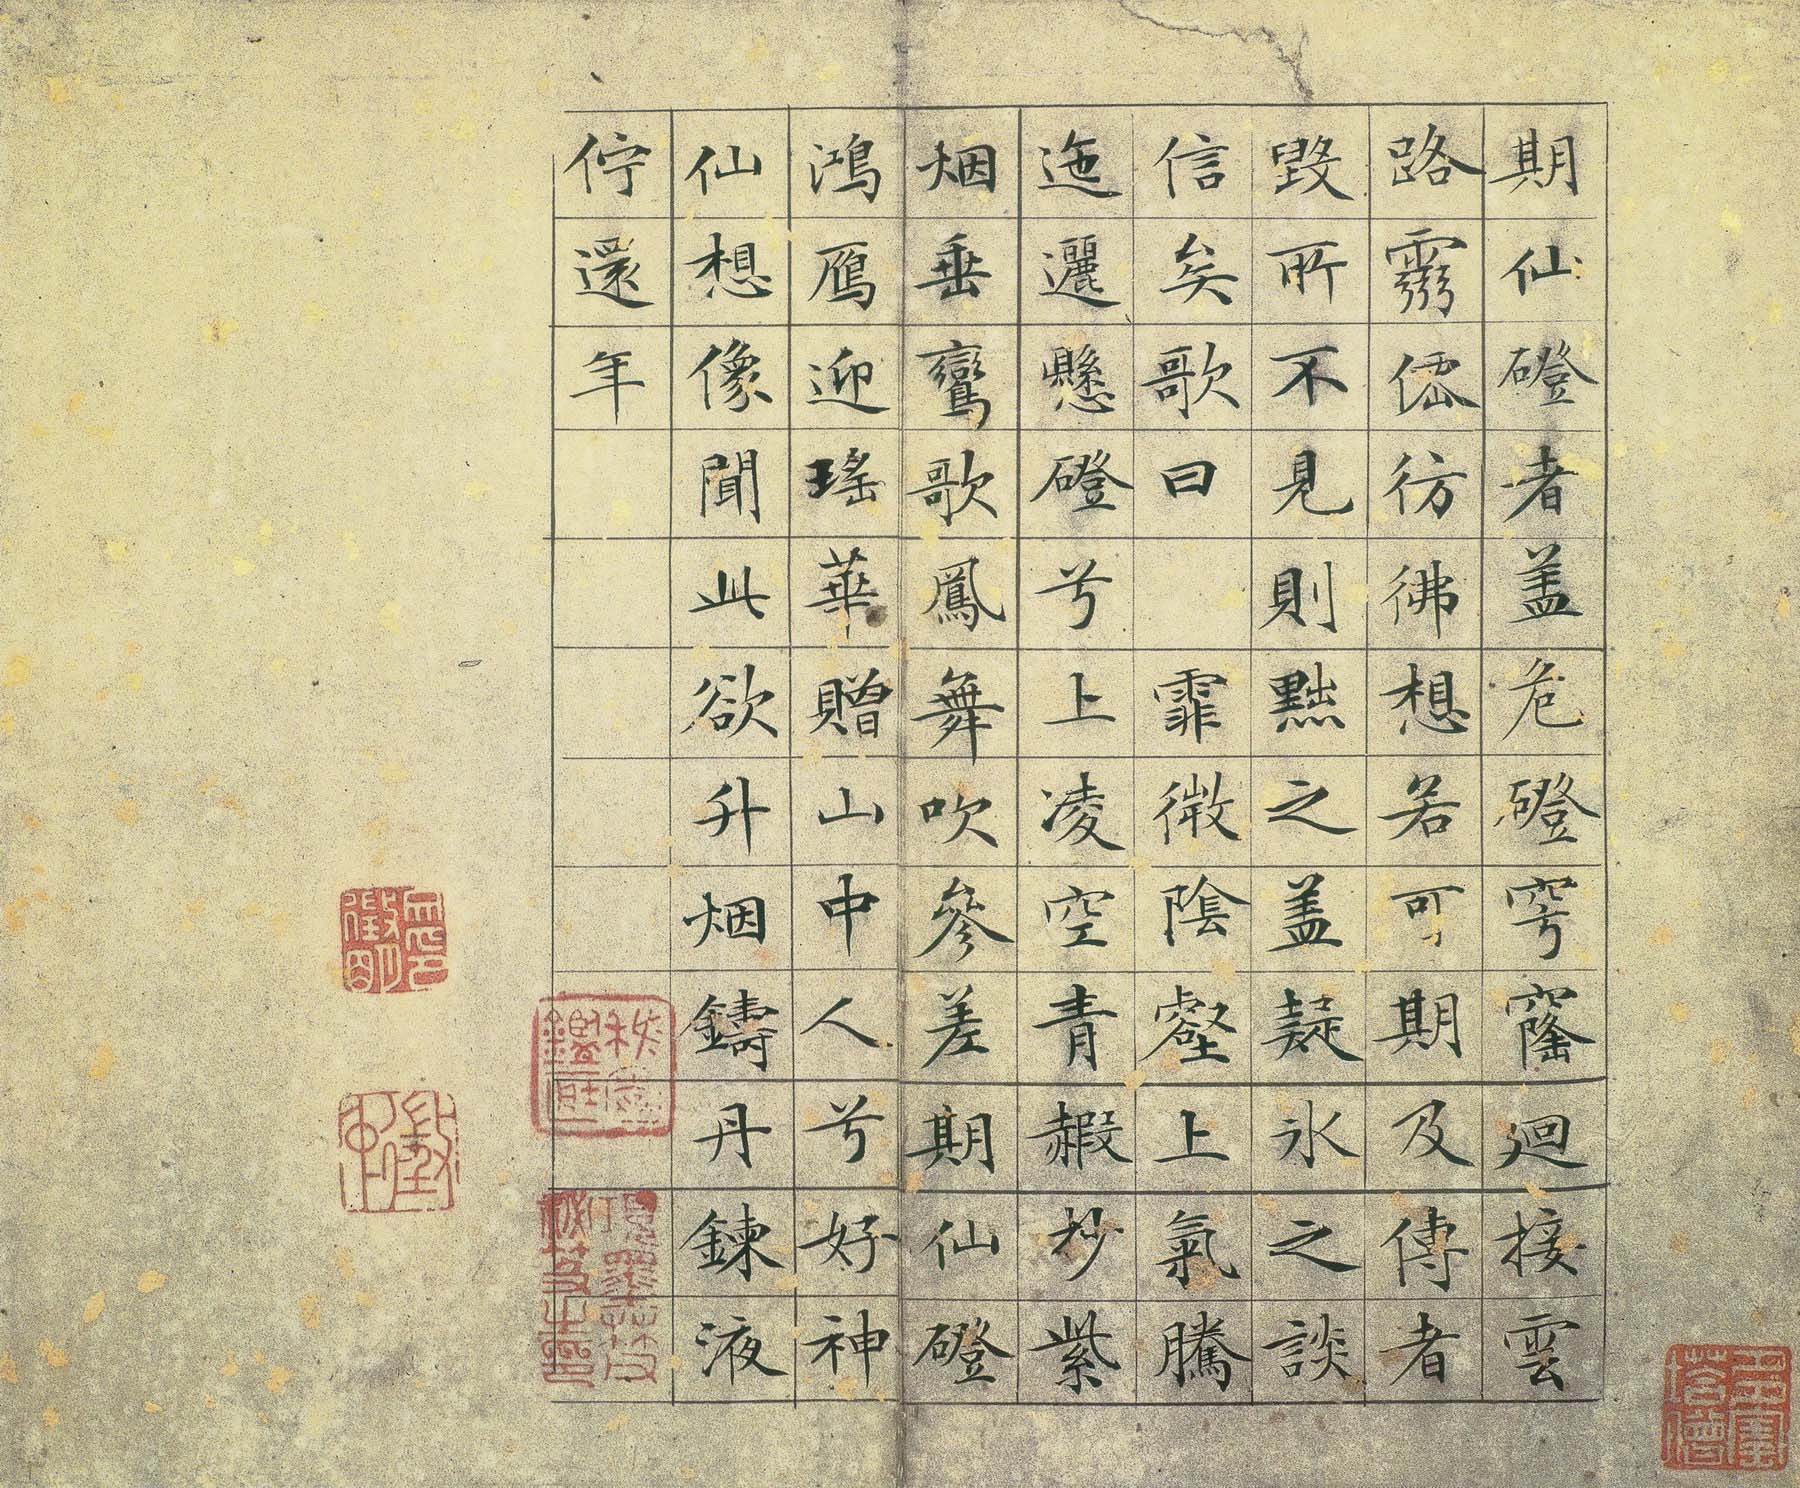 期仙磴者盖危磴穹窿迴接雲
路靈仙彷彿想若可期及傳者
毀所不見則黜之盖疑氷之談
信矣歌曰 霏微陰壑上氣騰
迤邐懸磴兮上凌空青霞抄紫
烟垂鸞歌鳳舞吹參差期仙磴
鴻鴈迎瑤華贈山中人兮好神
仙想像聞此欲升烟鑄丹鍊液
佇還年
徵明